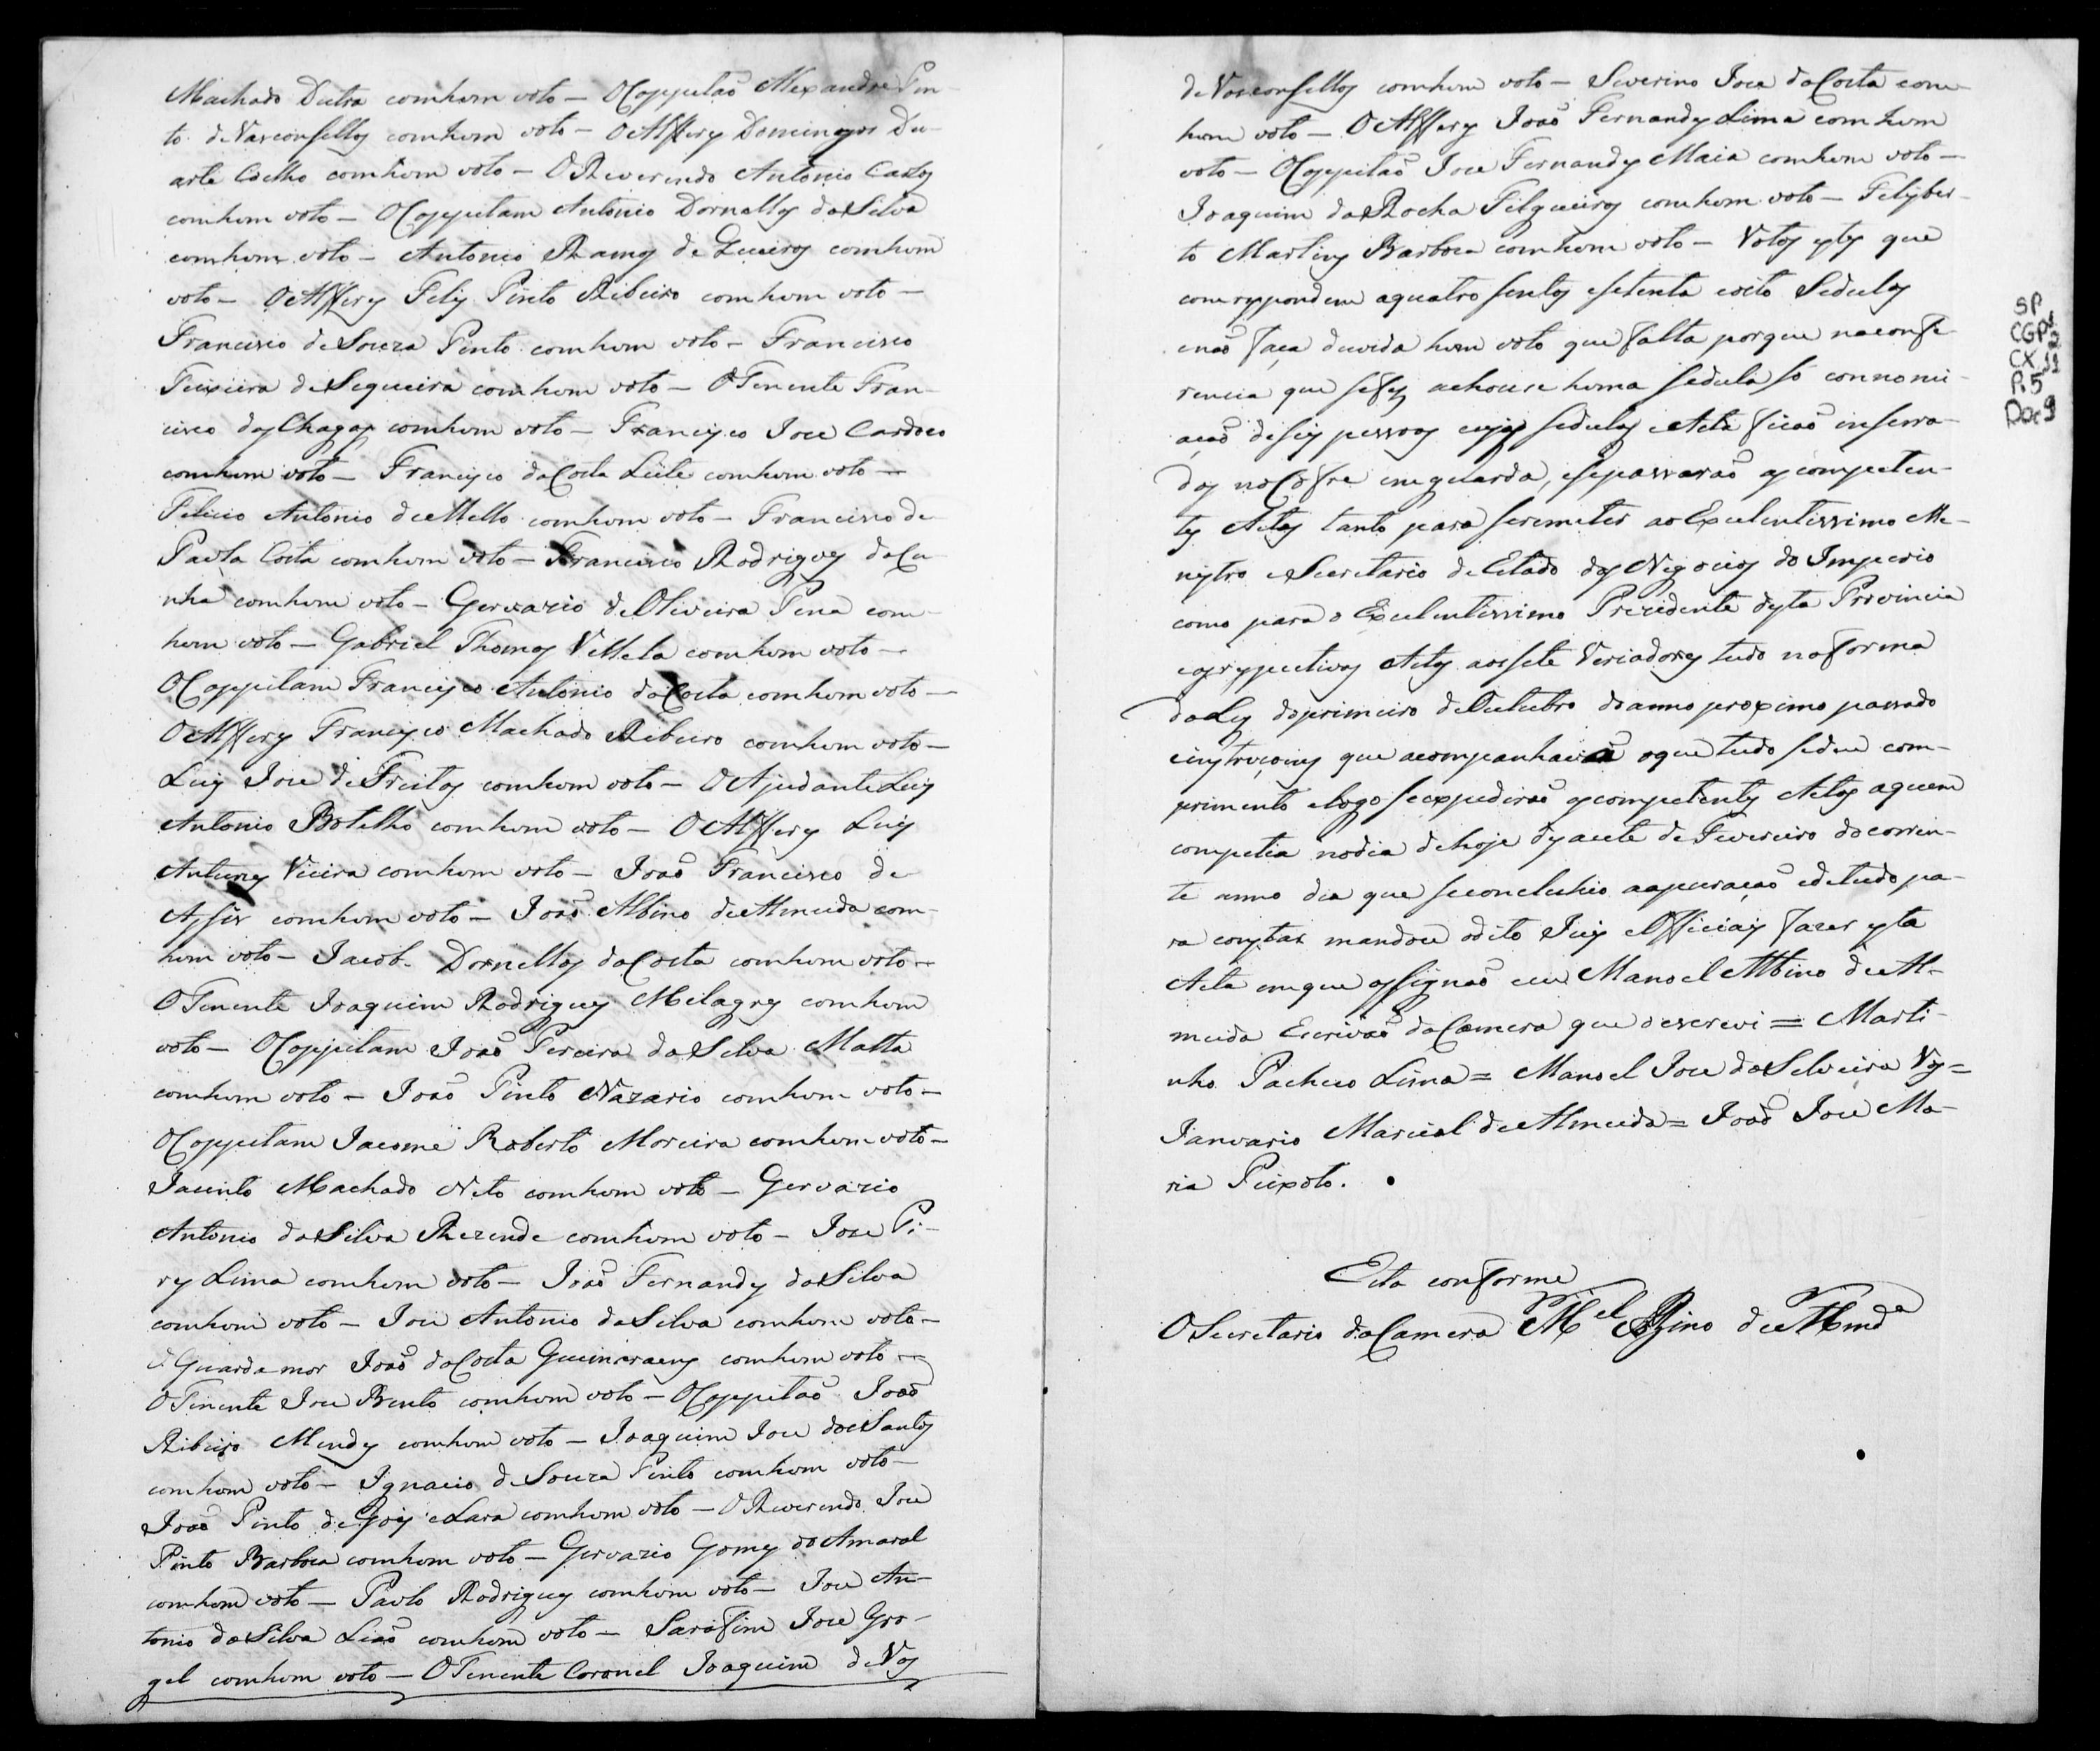 Machado Dutra comhum voto — OCappitaõ Alexandre Pin-
to deVasconsellos comhum voto — OAlfferes Domingos Du-
arte Coelho comhum voto — OReverendo Antonio Carlos
comhum voto — OCappitam Antonio Dornellas daSilva
comhum voto — Antonio Ramos de Queiros comhum
voto — OAlfferes Felis Pinto Ribeiro comhum voto —
Francisco deSouza Pinto comhum voto — Francisco
Teixeira deSequeira comhum voto — OTenente Fran-
cisco dasChagas comhum voto — Francisco Joze Cardozo
comhum voto — Francisco daCosta Leite comhum voto —
Felicio Antonio deMello comhum voto — Francisco de
Paula Costa comhum voto — Francisco Rodrigues daCu-
nha comhum voto — Gervazio deOliveira Pena com-
hum voto — Gabriel Thomas Villela comhum voto —
OCappitam Francisco Antonio daCosta comhum voto —
OAlfferes Francisco Machado Ribeiro comhum voto —
Luis Joze deFreitas comhum voto — OAjudante Luis
Antonio Botelho comhum voto — OAlfferes Luis
Antunes Vieira comhum voto — Joaõ Francisco de
Assis comhum voto — Joaõ Albino deAlmeida com-
hum voto — Jacob Dornellas daCosta comhum voto —
OTenente Joaquim Rodrigues Milagres comhum
voto — OCappitam Joaõ Pereira daSilva Matta
comhum voto — Joaõ Pinto Nazario comhum voto —
OCappitam Jacome Roberto Moreira comhum voto —
Jacinto Machado Neto comhum voto — Gervazio
Antonio daSilva Rezende comhum voto — Joze Pi-
res Lima comhum voto — Joaõ Fernandes daSilva
comhum voto — Joze Antonio daSilva comhum voto —
OGuardamor Joaõ daCosta Guimaraens comhum voto —
OTenente Joze Bento comhum voto — OCappitaõ Joaõ
Ribeiro Mendes comhum voto — Joaquim Joze dosSantos
comhum voto — Ignacio deSouza Pinto comhum voto —
Joaõ Pinto deGois eLara comhum voto — OReverendo Joze
Pinto Barboza comhum voto — Gervazio Gomes doAmaral
comhum voto — Paulo Rodrigues comhum voto — Joze An-
tonio daSilva Liaõ comhum voto — Sarafim Joze Gor-
gel comhum voto — OTenente Coronel Joaquim deVas
deVasconsellos comhum voto — Severino Joze daCosta com-
hum voto — OAlfferes Joaõ Fernandes Lima comhum
voto — OCappitaõ Joze Fernandes Maia comhum voto —
Joaquim daRocha Filgueiras comhum voto — Felisber-
to Martins Barboza comhum voto — Votos estes que
correspondem aquatro sentos esetenta eoito Sedulas
enaõ faça duvida hum voto que falta porque naconfe
rencia que sefes achouse huma sedula só comnomi-
açaõ deseis pessoas cujas sedulas eActa ficaõ inserra-
das noCofre emguarda, esepassaraõ as competen-
tes Actas tanto para seremeter aoExcelentissimo Me-
nistro eSecretario deEstado dosNegocios do Imperio
como para o Excelentissimo Prezidente desta Provincia
easrespectivas Actas aossete Veriadores tudo naforma
daLey doprimeiro deOutubro doanno proximo passado
einstruçoins que acompanhava oque tudo sedeu com-
primento elogo seexpediraõ ascompetentes Actas aquem
competia nodia dehoje desacete de Fevereiro docorren-
te anno dia que seconcluhio aapuraçaõ edetudo pa-
ra constar mandou odito Juis eOfficiais fazer esta
Acta emque assignaõ eeu Manoel Albino deAl-
meida Escrivaõ daCamera que oescrevi = Marti-
nho Pacheco Lima = Manoel Joze daSelveira Vas=
Januario Marcial deAlmeida = Joaõ Joze Ma-
ria Peixoto.
Esta conforme
OSecretario daCamera M.el Albino deAlmd.a
SP
CGP1
CX.11
P.5
Doc 9